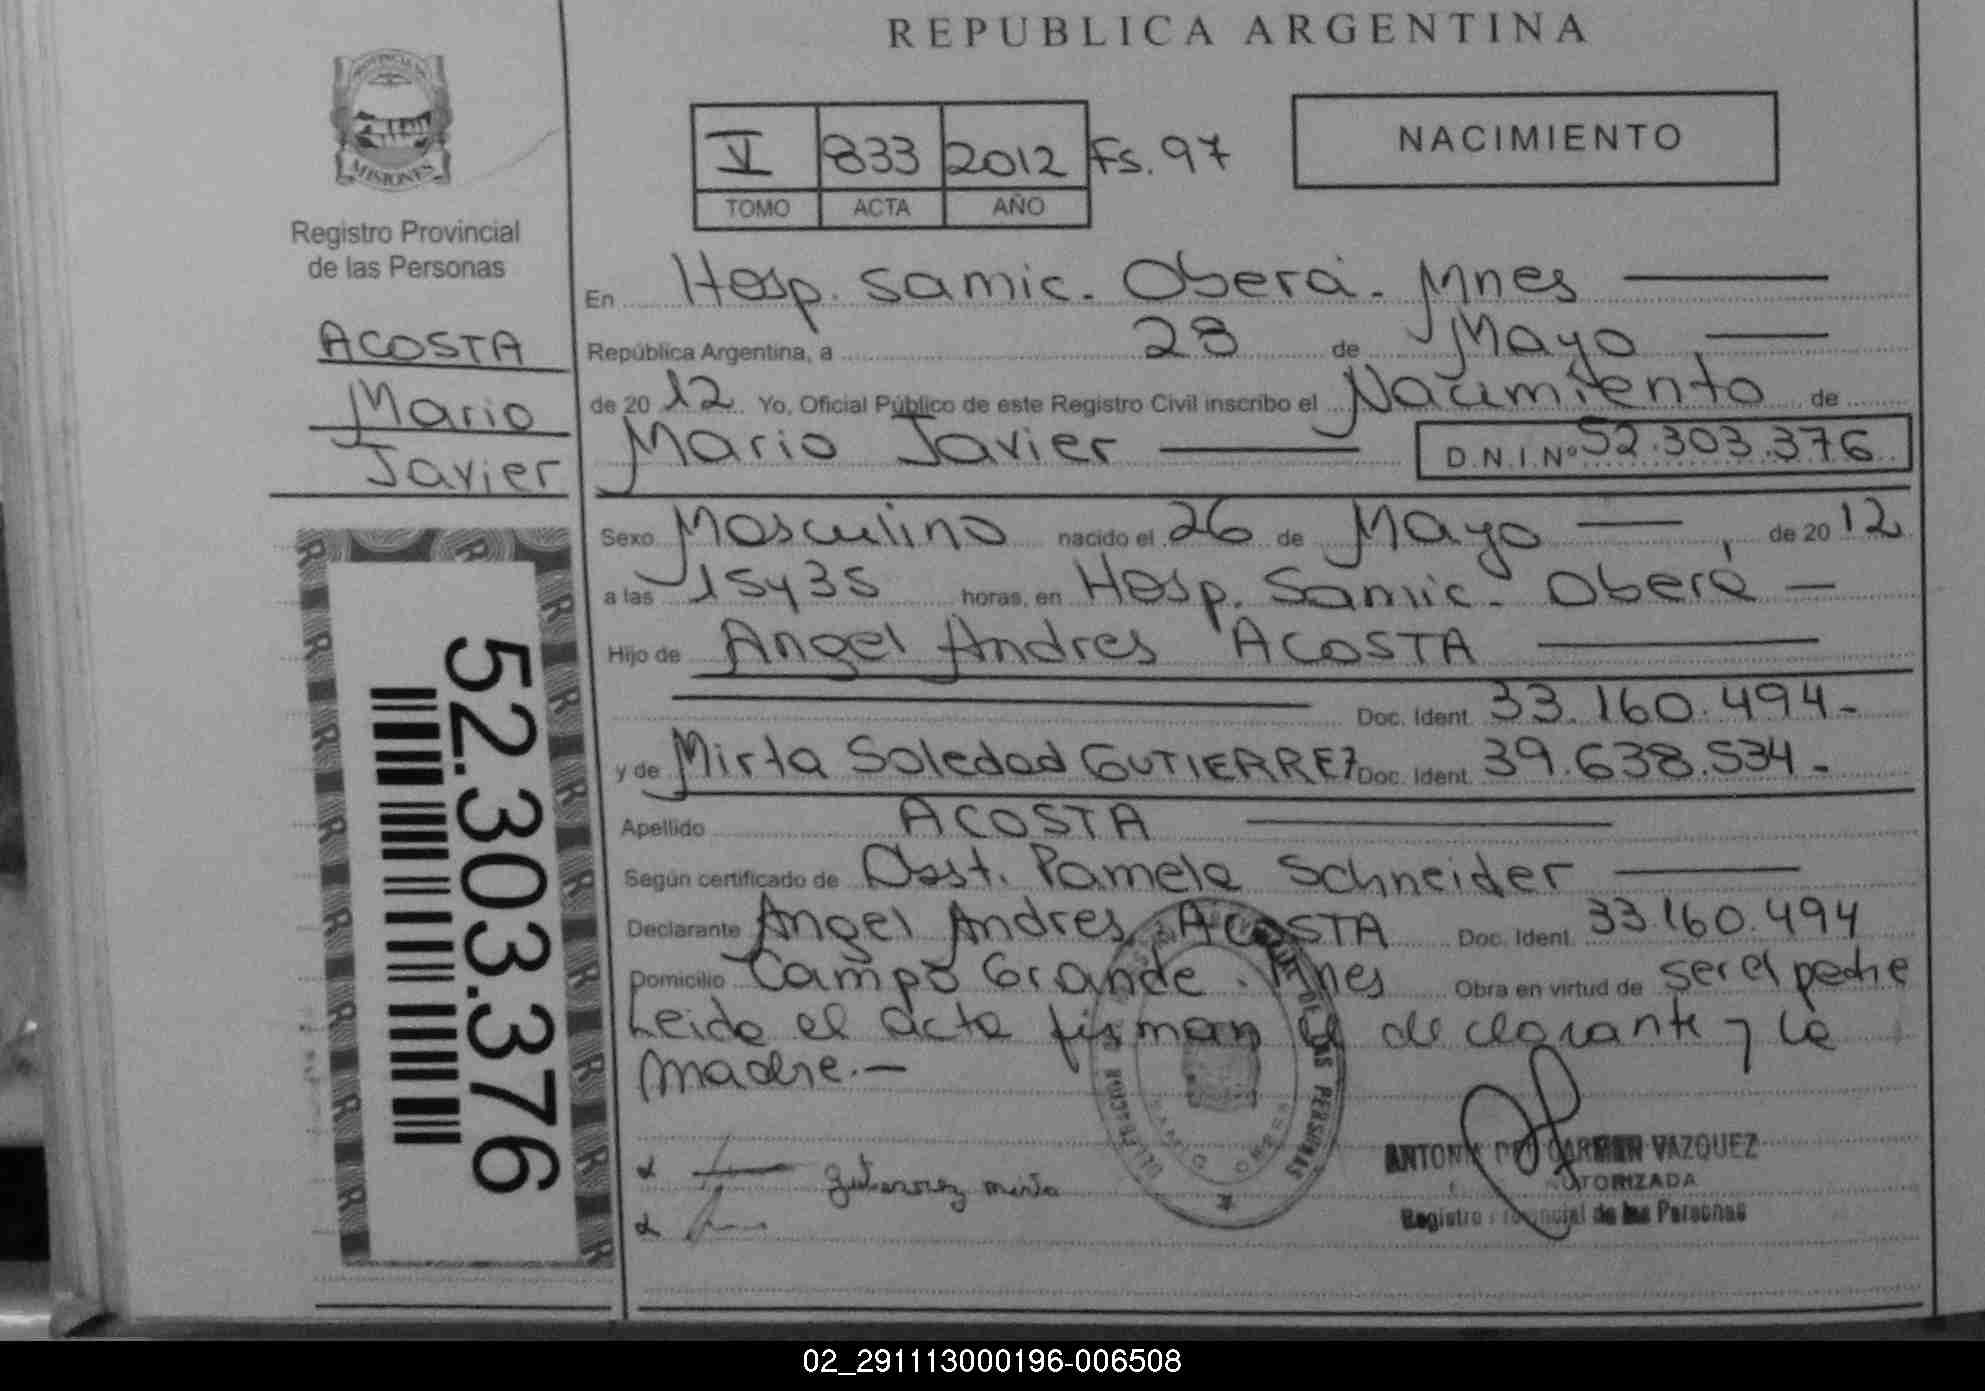 REPUBLICA ARGENTINA
PROVINCIA DE
MISIONES
Registro Provincial
de las Personas
V 833 2012 Fs. 97
TOMO ACTA AÑO
NACIMIENTO
ACOSTA
Mario
Javier
52.303.376
En Hosp. Samic. Oberá. Mnes
República Argentina, a 28 de Mayo
de 20 12 Yo, Oficial Público de este Registro Civil inscribo el Nacimiento de
Mario Javier D.N.I.Nº 52.303.376
Sexo Masculino nacido el 26 de Mayo, de 20 12
a las 15y35 horas, en Hosp. Samic. Oberá
Hijo de Angel Andres ACOSTA
Doc. Ident. 33.160.494.-
y de Mirta Soledad GUTIERREZ Doc. Ident. 39.638.534.-
Apellido ACOSTA
Según certificado de Obst. Pamela Schneider
Declarante Angel Andres ACOSTA Doc. Ident. 33.160.494
Domicilio Campo Grande. Mnes Obra en virtud de ser el padre
Leida el acta firman el declarante y la
madre.-
Gutierrez mirta
DE LAS PERSONAS
ANTONIA DEL CARMEN VAZQUEZ
AUTORIZADA
Registro Provincial de las Personas
02_291113000196-006508